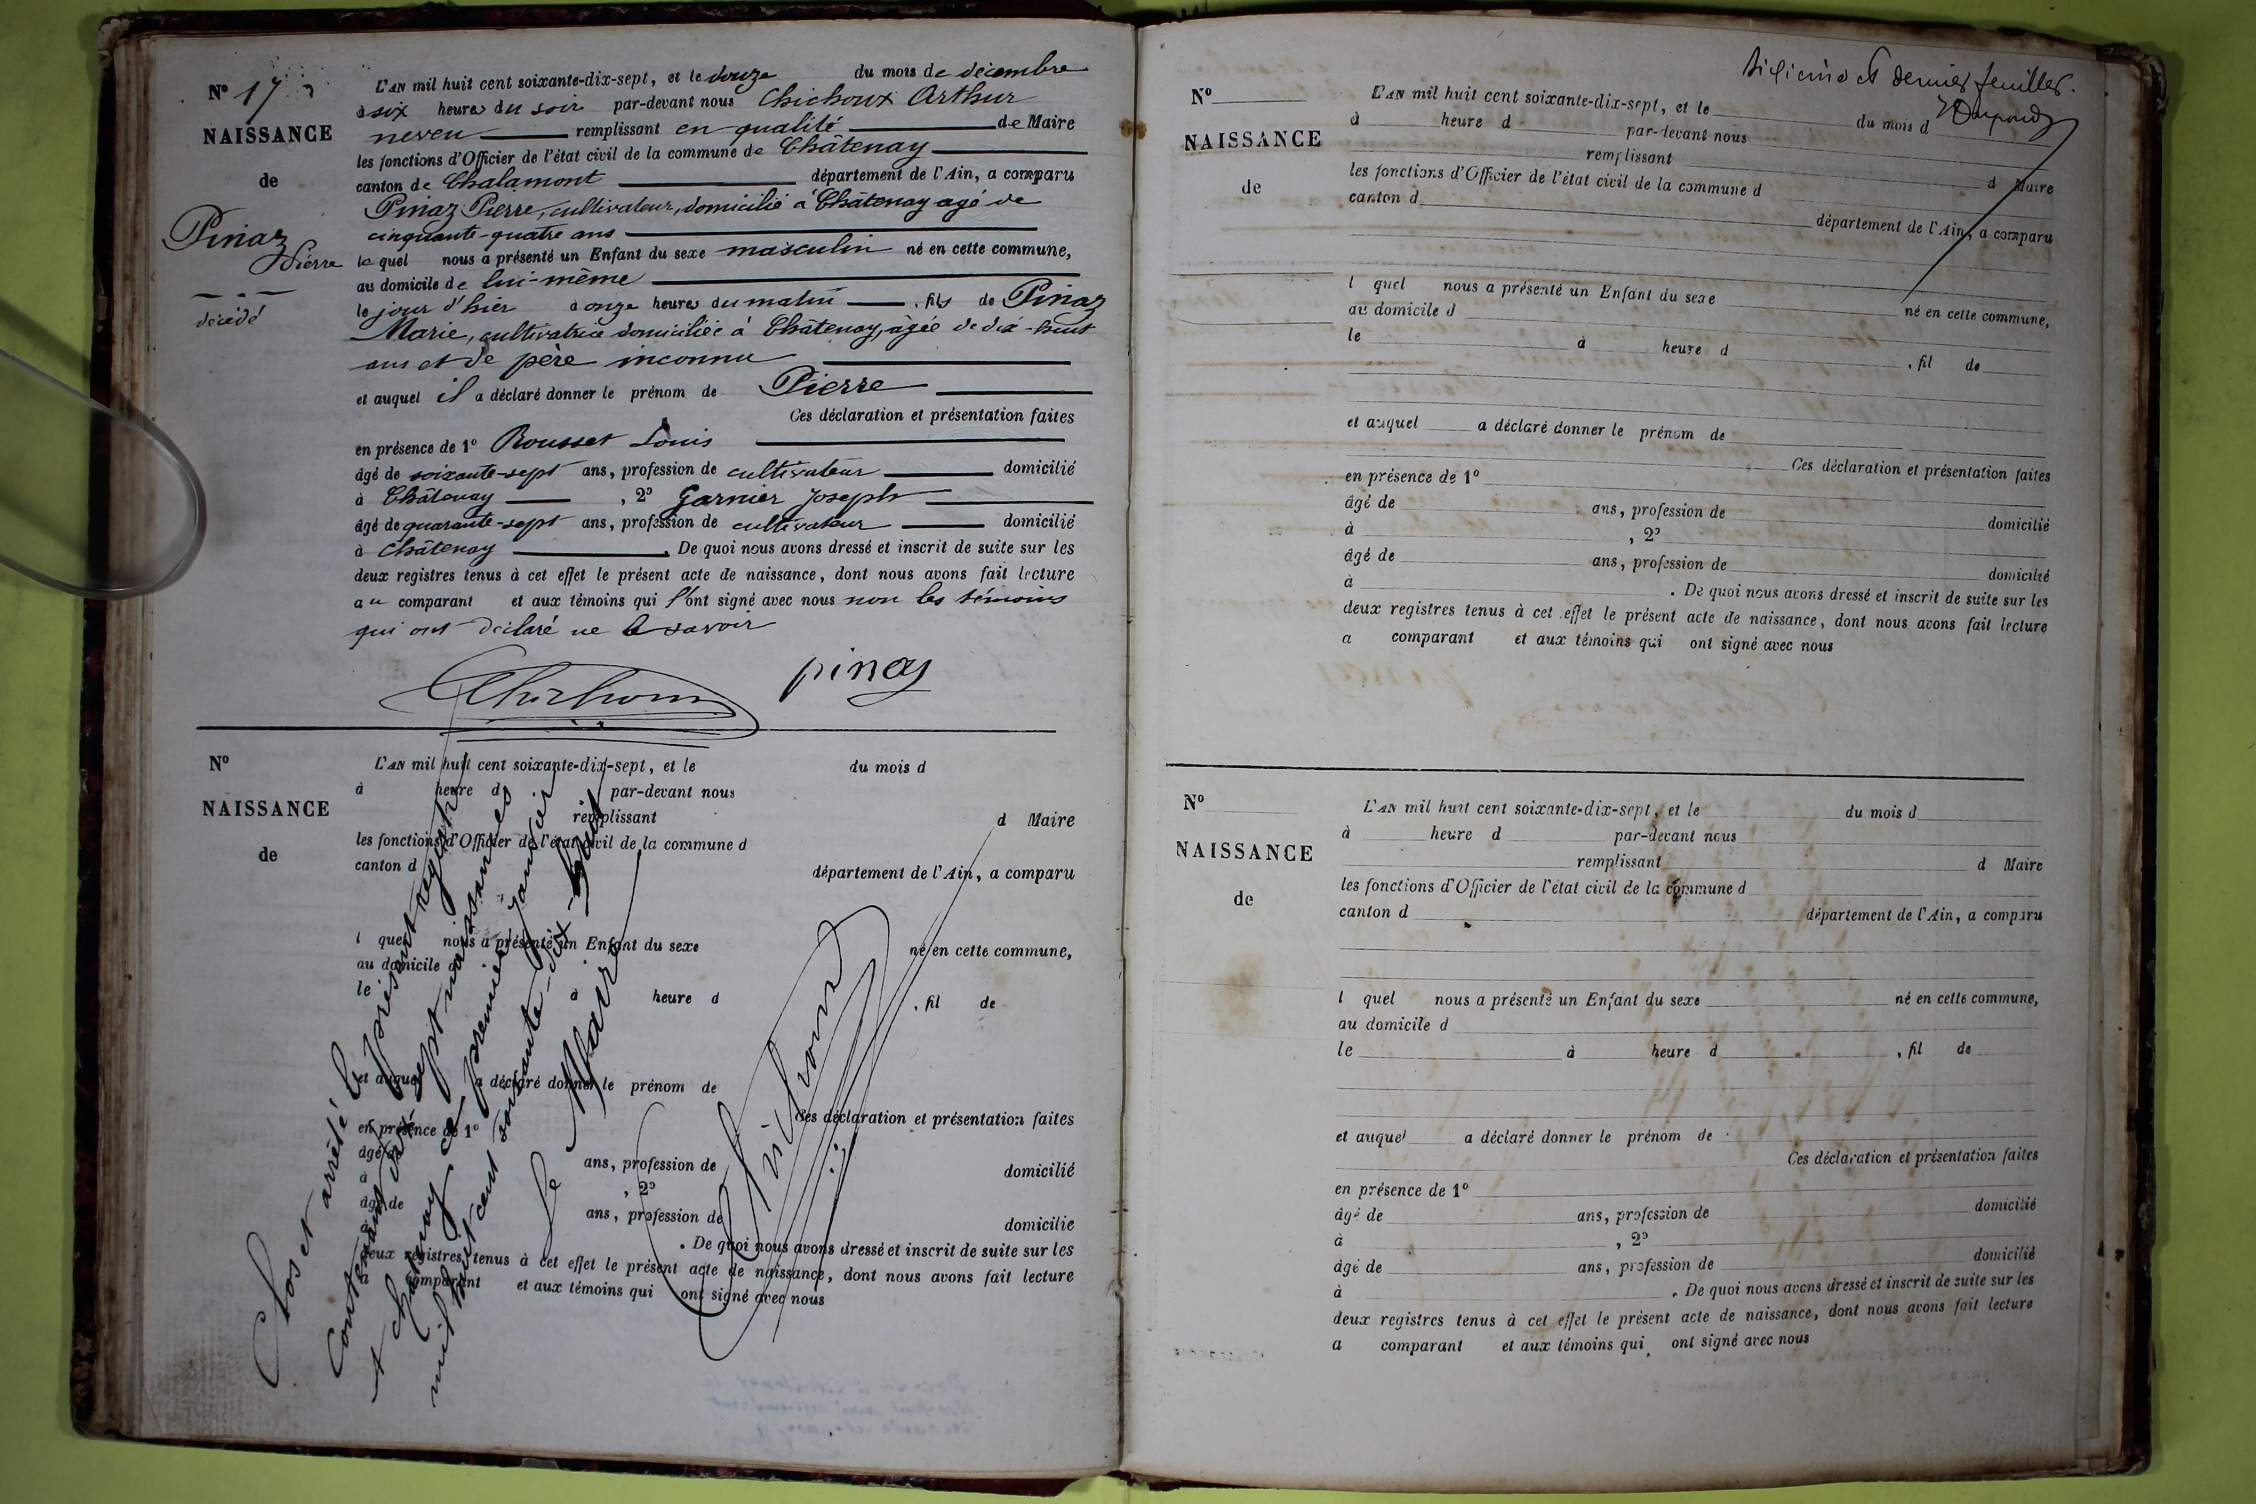 N° 17
NAISSANCE
de
Pinaz
Pierre
décédé
L'AN mil huit cent soixante-dix-sept, et le douze du mois de décembre
à six heures du soir par-devant nous Chichoux Arthur
neveu remplissant en qualité de Maire
les fonctions d'Officier de l'état civil de la commune de Châtenay
canton de Chalamont département de l'Ain, a comparu
Pinaz Pierre, cultivateur, domicilié à Châtenay agé de
cinquante-quatre ans
lequel nous a présenté un Enfant du sexe masculin né en cette commune,
au domicile de lui-même
le jour d'hier à onze heures du matin, fils de Pinaz
Marie, cultivatrice domiciliée à Châtenay, âgée de dix-huit
ans et de père inconnu
et auquel il a déclaré donner le prénom de Pierre
Ces déclaration et présentation faites
en présence de 1° Rousset Louis
âgé de soixante-sept ans, profession de cultivateur domicilié
à Châtenay, 2° Garnier Joseph
âgé de quarante-sept ans, profession de cultivateur domicilié
à Châtenay. De quoi nous avons dressé et inscrit de suite sur les
deux registres tenus à cet effet le présent acte de naissance, dont nous avons fait lecture
au comparant et aux témoins qui l'ont signé avec nous non les témoins
qui ont déclaré ne le savoir
Chichoux pinaz
N°
NAISSANCE
de
L'AN mil huit cent soixante-dix-sept, et le du mois d
à heure d par-devant nous
remplissant d Maire
les fonctions d'Officier de l'état civil de la commune d
canton d département de l'Ain, a comparu
l quel nous a présenté un Enfant du sexe né en cette commune,
au domicile d
le à heure d , fil de
et auquel a déclaré donner le prénom de
Ces déclaration et présentation faites
en présence de 1°
âgé de ans, profession de domicilié
à , 2°
âgé de ans, profession de domicilié
à . De quoi nous avons dressé et inscrit de suite sur les
deux registres tenus à cet effet le présent acte de naissance, dont nous avons fait lecture
a comparant et aux témoins qui ont signé avec nous
Clos et arrêté le présent registre
contenant dix sept naissances
A Châtenay ce premier janvier
mil huit cent soixante-dix-huit
Le Maire
Chichoux
Dixième et dernier feuillet.
N°
NAISSANCE
de
L'AN mil huit cent soixante-dix-sept, et le du mois d
à heure d par-devant nous
remplissant d Maire
les fonctions d'Officier de l'état civil de la commune d
canton d département de l'Ain, a comparu
l quel nous a présenté un Enfant du sexe né en cette commune,
au domicile d
le à heure d , fil de
et auquel a déclaré donner le prénom de
Ces déclaration et présentation faites
en présence de 1°
âgé de ans, profession de domicilié
à , 2°
âgé de ans, profession de domicilié
à . De quoi nous avons dressé et inscrit de suite sur les
deux registres tenus à cet effet le présent acte de naissance, dont nous avons fait lecture
a comparant et aux témoins qui ont signé avec nous
N°
NAISSANCE
de
L'AN mil huit cent soixante-dix-sept, et le du mois d
à heure d par-devant nous
remplissant d Maire
les fonctions d'Officier de l'état civil de la commune d
canton d département de l'Ain, a comparu
l quel nous a présenté un Enfant du sexe né en cette commune,
au domicile d
le à heure d , fil de
et auquel a déclaré donner le prénom de
Ces déclaration et présentation faites
en présence de 1°
âgé de ans, profession de domicilié
à , 2°
âgé de ans, profession de domicilié
à . De quoi nous avons dressé et inscrit de suite sur les
deux registres tenus à cet effet le présent acte de naissance, dont nous avons fait lecture
a comparant et aux témoins qui ont signé avec nous